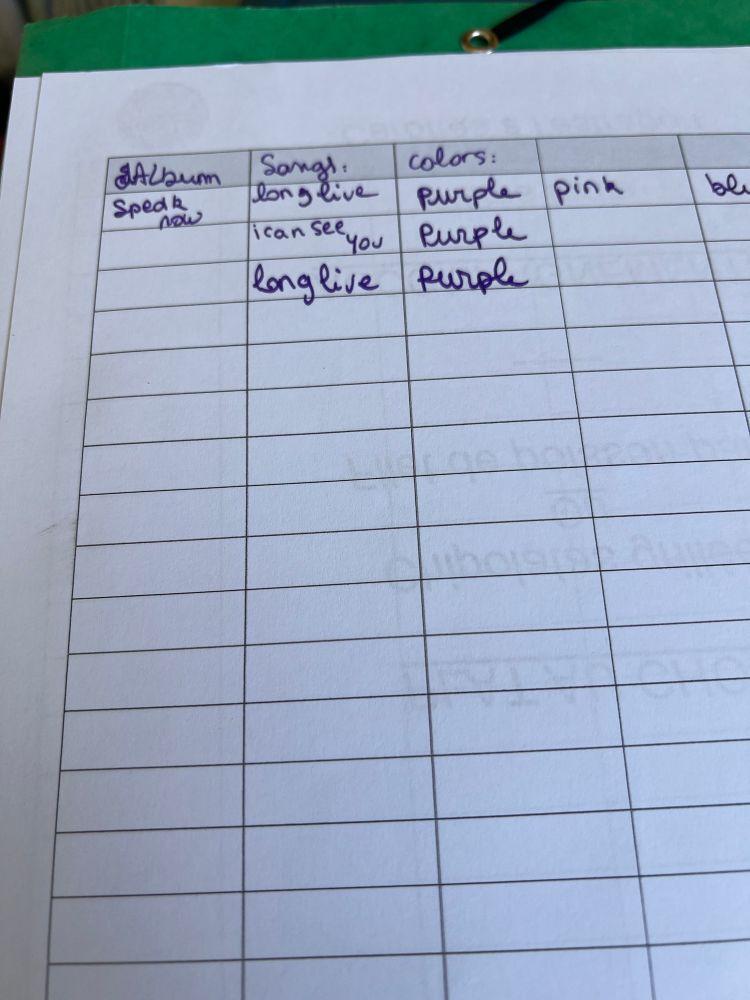 Album Songs: colors:
Speak now long live purple pink
i can see you Purple
long live purple